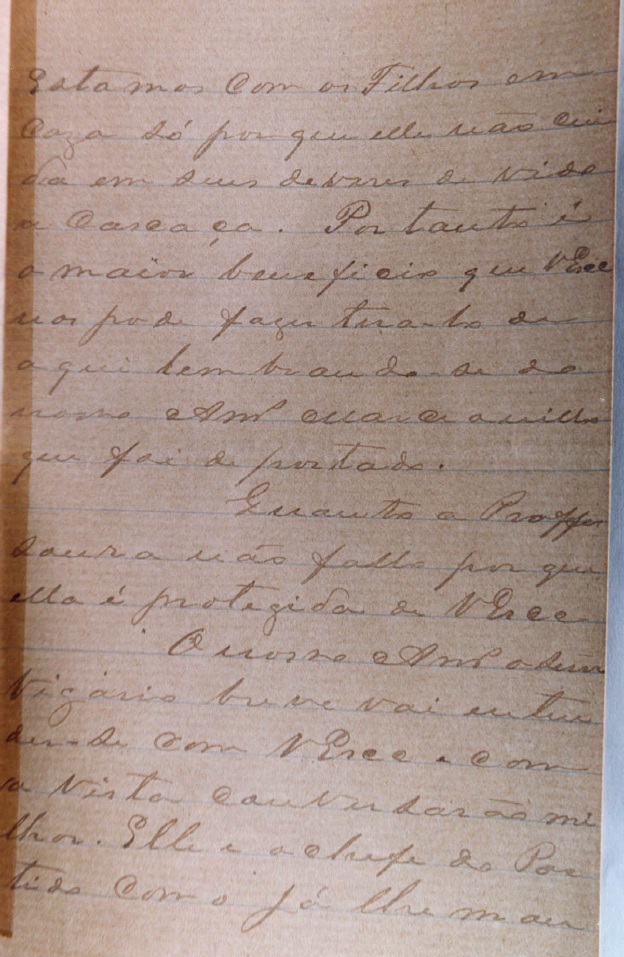 Estamos com os Filhos em
Caza só por que elle não cui
da em seus deveres devido
a Casca ça. Portanto é
o maior beneficio que VExcc
nos pode fazer tira-lo de
aqui lembrando-se do
nosso Amº
que foi deportado.
Quanto a Proffes
soura não fallo por que
ella é protegida de VExcc
O nosso Amº o Senr
Vigário breve vai enten
der-se com VExcc e com
a vista conversarão mi
lhor. Elle e o chefe do Par
tido como já lhe man